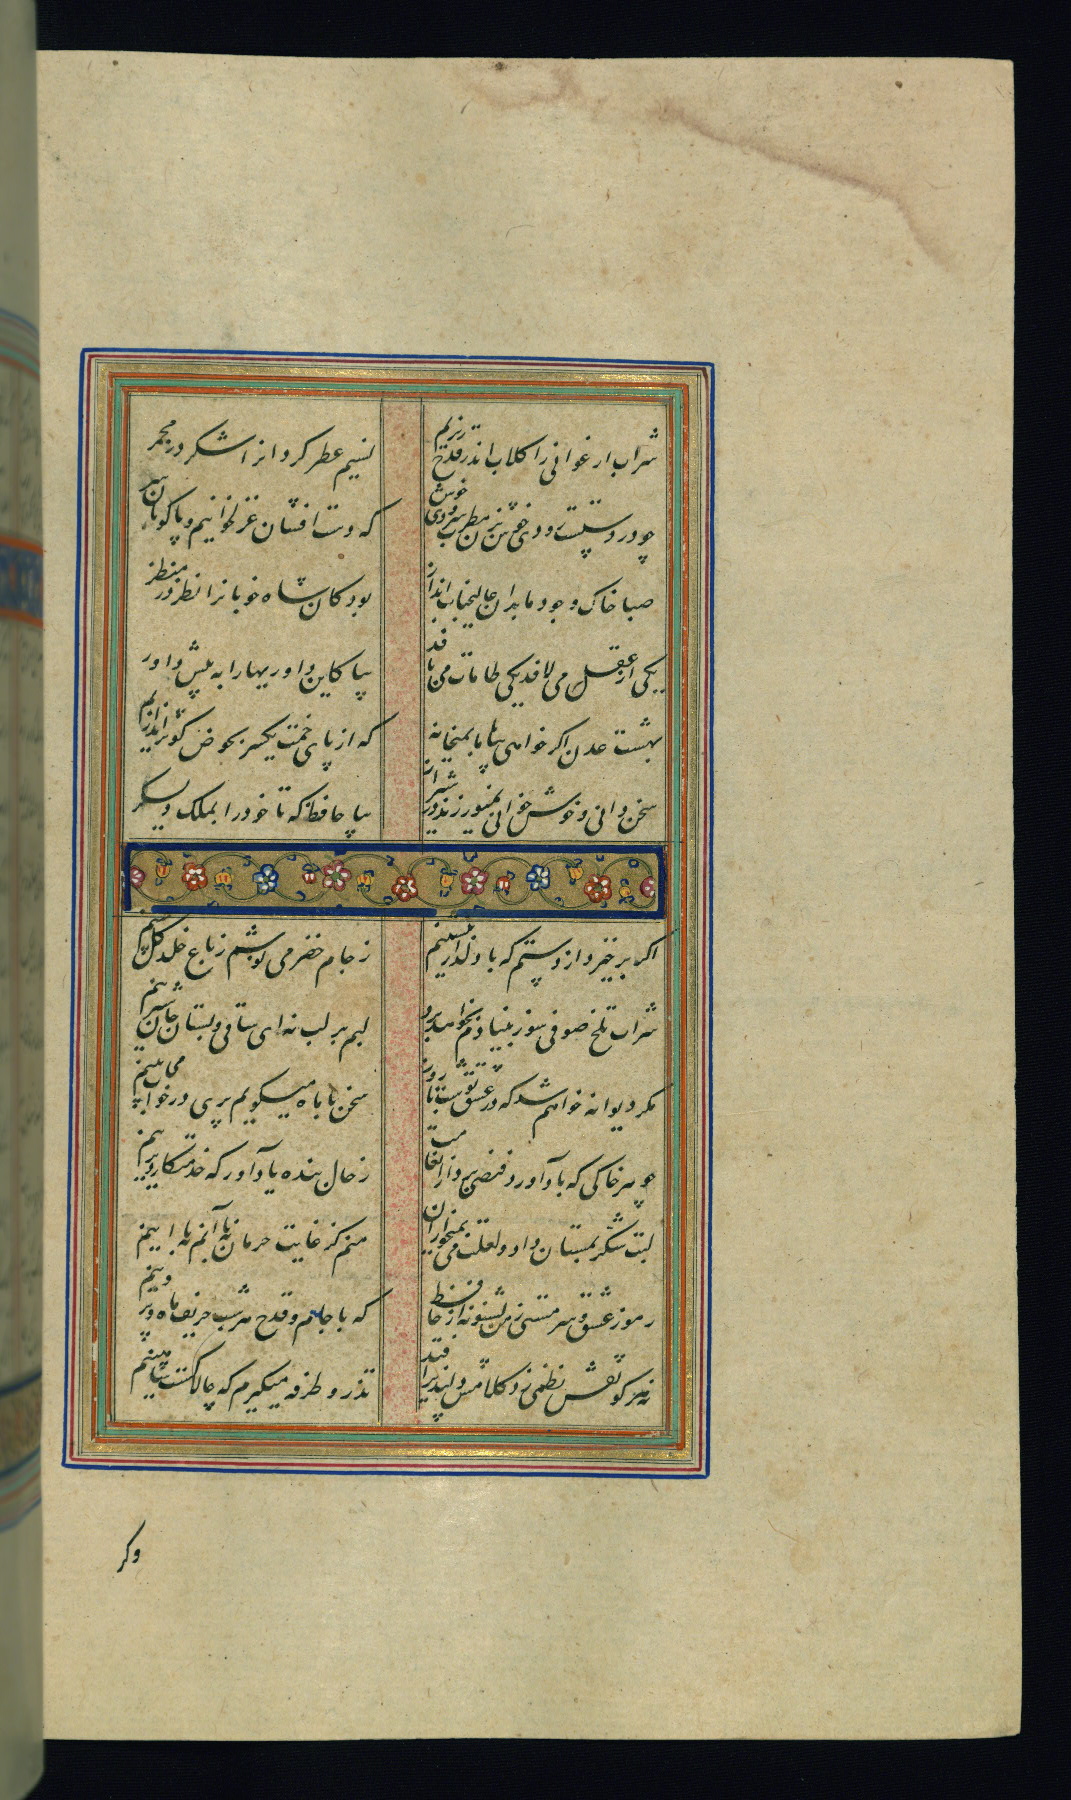 شراب ارغوانی را کلاب اندر قدح ریزیم
نسیم عطر کردانرا شکر در مجمر
چو در دستست رودی خوش بزن مطرب سرودی خوش
که دست افشان غزل خوانیم و پا کوبان سر
صبا خاک وجود ما بدان عالیجناب انداز
بود کان شاه خوبانرا نظر در منظر
یکی از عقل می لافد یکی طامات می بافد
بیا کاین داوریها را به پیش داور
بهشت عدن اکر خواهی بیا با ما بمیخانه
که از پای خمت یکسر بحوض کوثر اندازیم
سخن دانی و خوش خوانی نمیورزند در شیراز
بیا حافظ که تا خود را بملک دیکر
اکر برخیزد از دستم که با دلدار بنشینم
ز جام خضر می نوشم ز باغ خلد کل چینم
شراب تلخ صوفی سوز بنیادم بخواهد برد
لبم بر لب نه ای ساقی و بستان جان شیرینم
مکر دیوانه خواهم شد که در عشق تو شب تا روز
سخن با ماه میکویم پری در خواب می بینم
چو هر خاکی که باد آورد فیضی برد از انعامت
ز حال بنده یاد آور که خدمتکار دیرینم
لبت شکر بمستان داد و لعلت می بمیخواران
منم کز غایت حرمان نه با آنم نه با اینم
رموز عشق و سرمستی ز من بشنو نه از حافظ
که با جام و قدح هر شب حریف ماه و پروینم
نه هر کو نقش نظمی زد کلامش دلپذیر افتد
تذرو طرفه میکیرم که چالاکست شاهینم
وکر